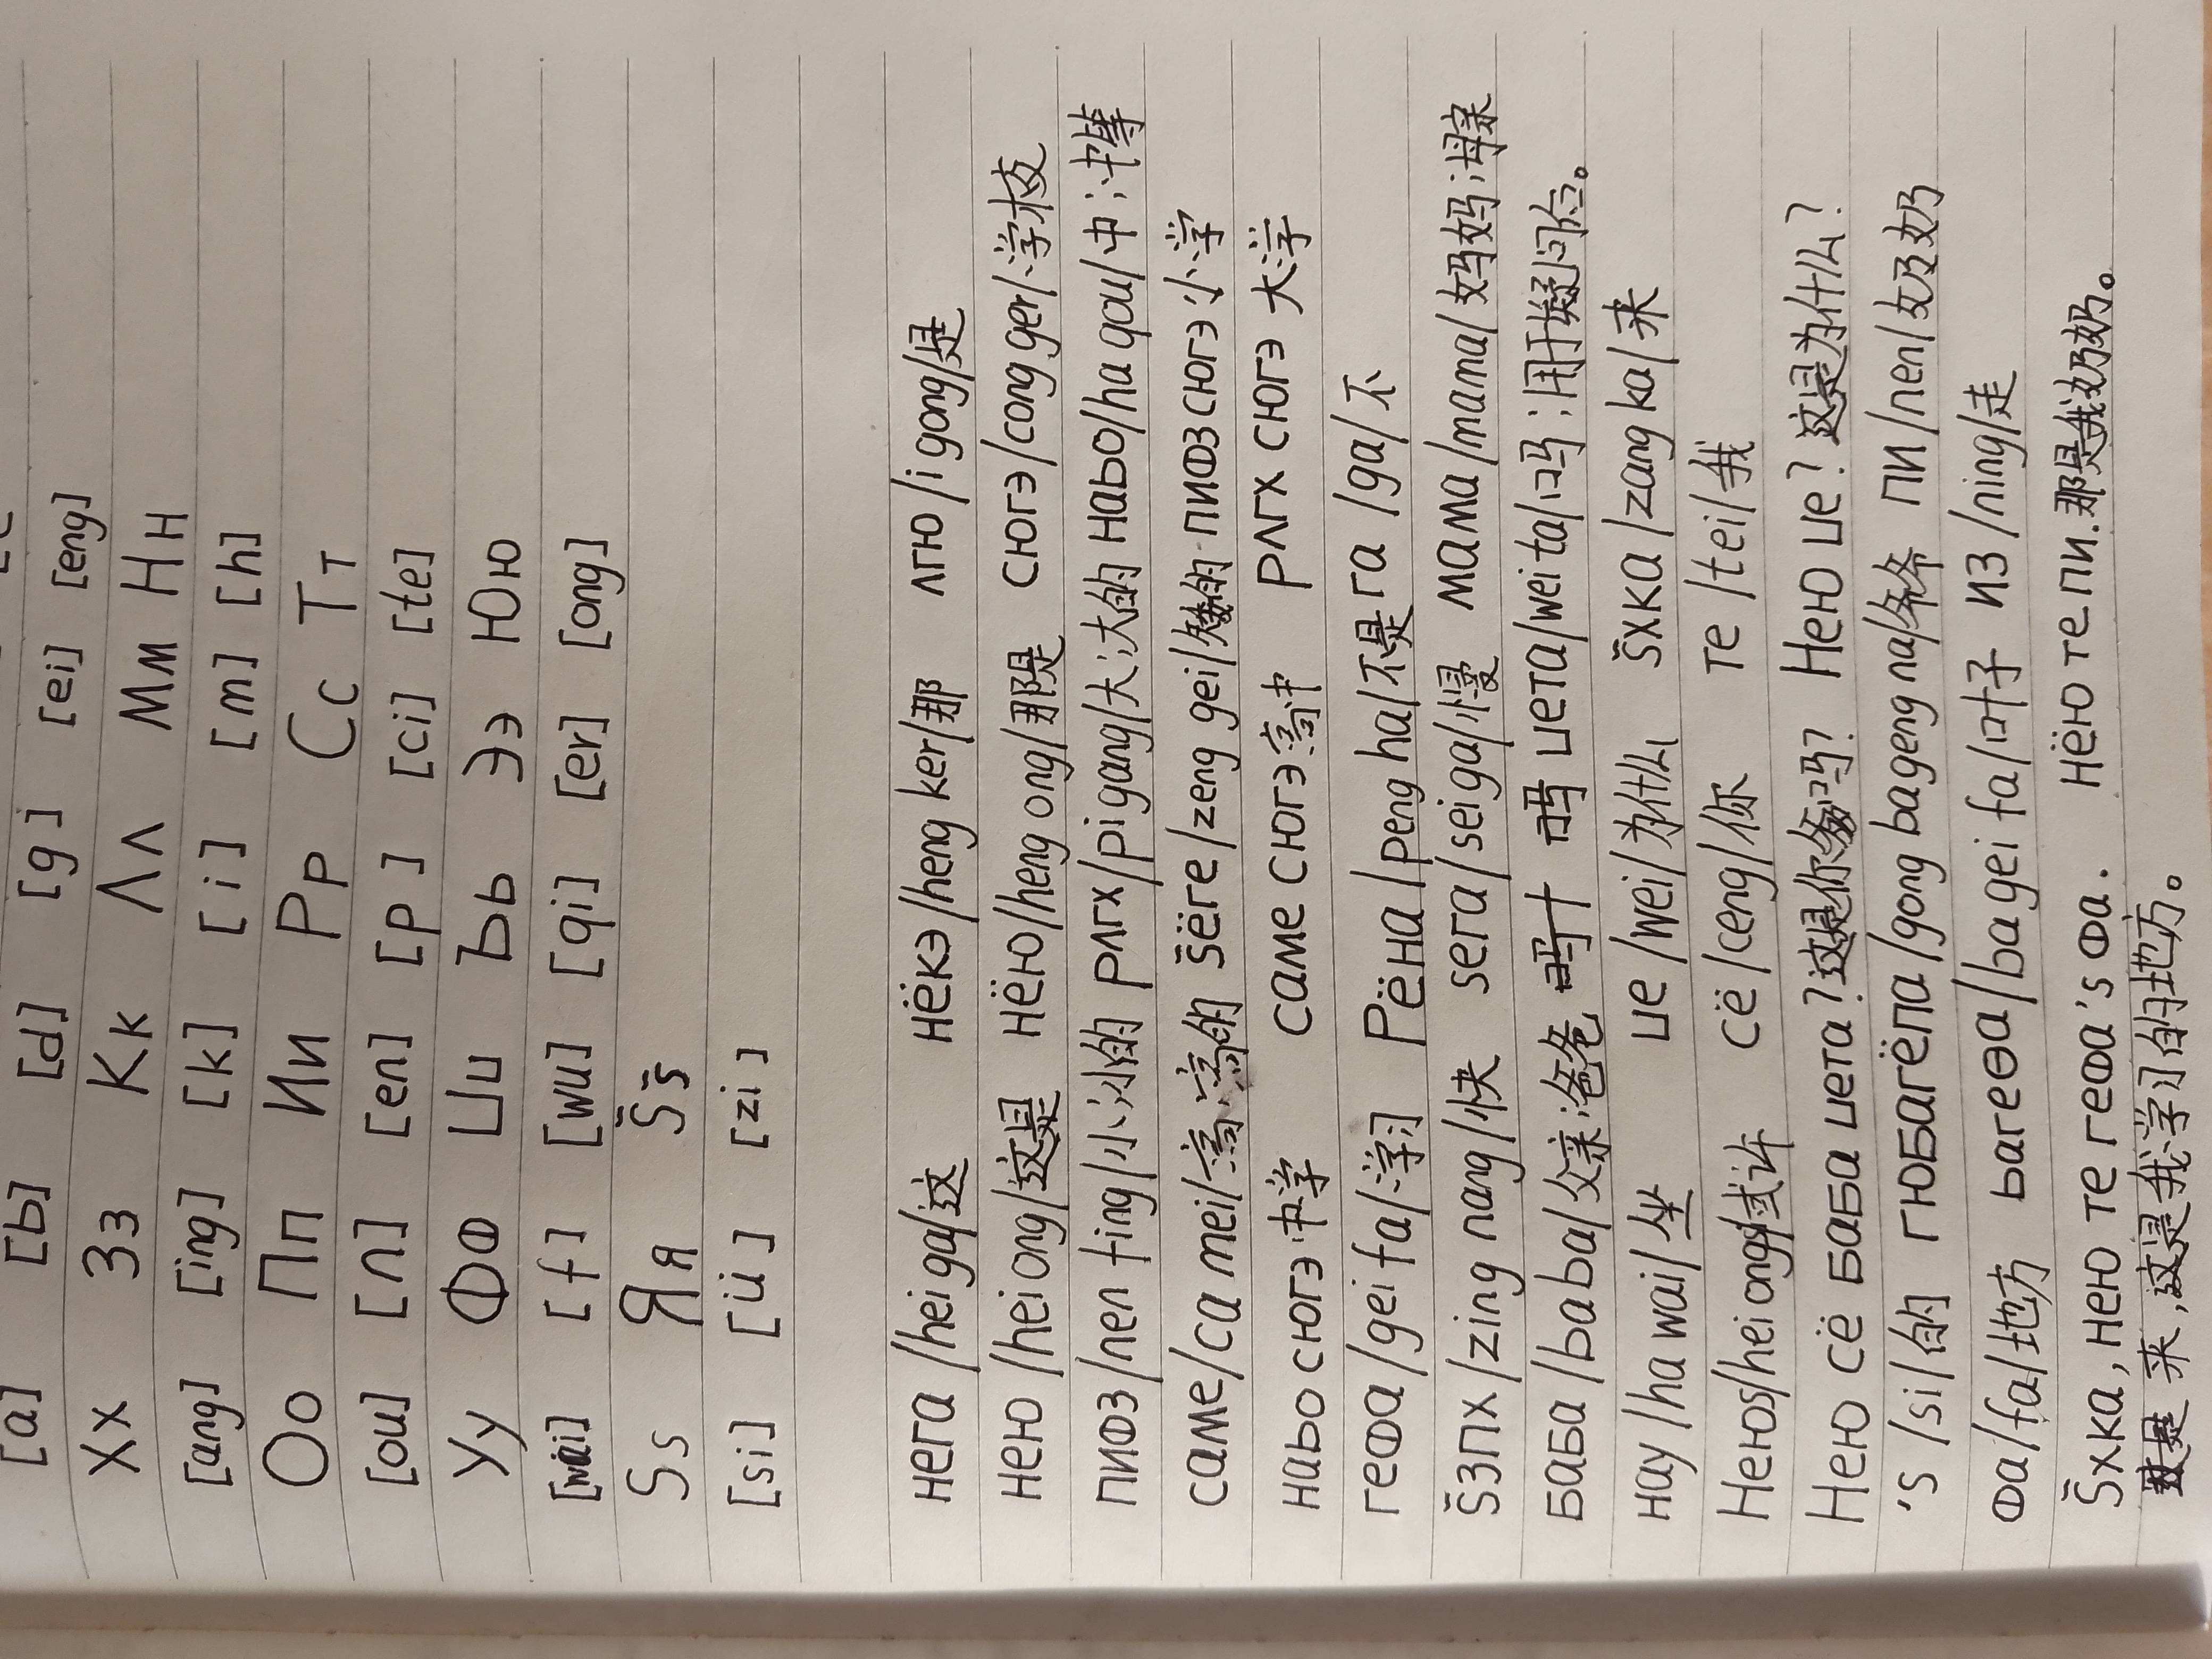 [a] [b] [d] [g] [ei] [eng]
Хх Зз Кк Лл Мм Нн
[ang] [ing] [k] [i] [m] [h]
Оо Пп Ии Рр Сс Тт
[ou] [n] [en] [p] [ci] [te]
Уу Фф Цц Ьь Ээ Юю
[wai] [f] [wu] [qi] [er] [ong]
Ss Яя S̄s̄
[si] [ü] [zi]
нега /hei ga/这 нёкэ/heng ker/那 лгю/i gong/是
нею /hei ong/这是 нёю/heng ong/那是 сюгэ/cong ger/学校
пифз/nen fing/小;小的 рлгх/pi gang/大;大的 наьо/ha qou/中;中等
саме/ca mei/高;高的 s̄ёге/zeng gei/矮的 пифз сюгэ 小学
наьо сюгэ 中学 саме сюгэ 高中 рлгх сюгэ 大学
гефа/gei fa/学习 Рёна/peng ha/不是 га /ga/不
s̄зпх/zing nang/快 sега/sei ga/慢 мама/mama/妈妈;母亲
баба/baba/父亲;爸爸 цета/wei ta/吗;用于疑问句。
нау/ha wai/坐 це/wei/为什么 s̄хка/zang ka/来
Неюs/hei ong si/或许 сё/ceng/你 те/tei/我
Нею сё баба цета?这是你爹吗? Нею це?这是为什么?
's/si/的 гюбагёпа/gong bageng na/爷爷 пи/nen/奶奶
фа/fa/地方 ьагефа/ba gei fa/叶子 из/ning/走
S̄хка, нею те гефа's фа. нёю те пи.那是我奶奶。
来,这是我学习的地方。